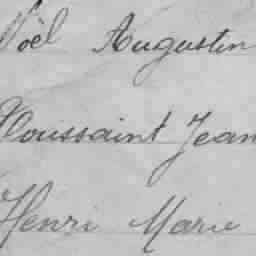 Noël Augustin
Toussaint Jean
Henri Marie